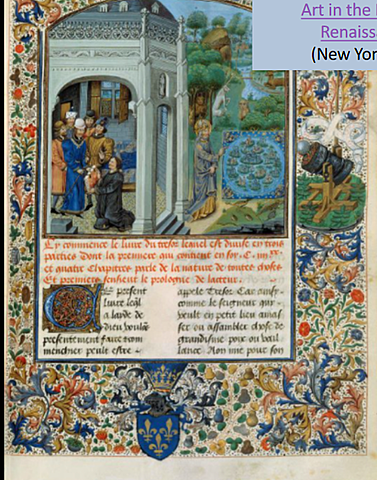 Art in the
Renaiss
(New Yor
Cy commence le livre du tresor lequel est divise en trois
parties Dont la premiere qui contient en soy. C.
et quatre Chapitres parle de la nature de toutes choses
Et premierement le prologue de lacteur.
Ce present
livre
a laide de
dieu
presentement faire com
mencher peult estre
appele Tresor Car ainsy
comme le seigneur qui
veult en petit lieu amas
ser ou assambler chose de
grandisme pour
Non mie pour son